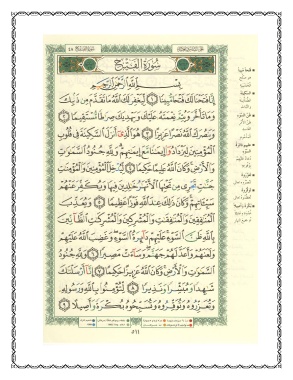 سُورَةُ الفَتْحِ
بِسْمِ اللَّهِ الرَّحْمَٰنِ الرَّحِيمِ
إِنَّا فَتَحْنَا لَكَ فَتْحًا مُّبِينًا ١ لِّيَغْفِرَ لَكَ اللَّهُ مَا تَقَدَّمَ مِن ذَنبِكَ
وَمَا تَأَخَّرَ وَيُتِمَّ نِعْمَتَهُ عَلَيْكَ وَيَهْدِيَكَ صِرَاطًا مُّسْتَقِيمًا ٢
وَيَنصُرَكَ اللَّهُ نَصْرًا عَزِيزًا ٣ هُوَ الَّذِي أَنزَلَ السَّكِينَةَ فِي قُلُوبِ
الْمُؤْمِنِينَ لِيَزْدَادُوا إِيمَانًا مَّعَ إِيمَانِهِمْ وَلِلَّهِ جُنُودُ السَّمَاوَاتِ
وَالْأَرْضِ وَكَانَ اللَّهُ عَلِيمًا حَكِيمًا ٤ لِّيُدْخِلَ الْمُؤْمِنِينَ وَالْمُؤْمِنَاتِ
جَنَّاتٍ تَجْرِي مِن تَحْتِهَا الْأَنْهَارُ خَالِدِينَ فِيهَا وَيُكَفِّرَ عَنْهُمْ
سَيِّئَاتِهِمْ وَكَانَ ذَٰلِكَ عِندَ اللَّهِ فَوْزًا عَظِيمًا ٥ وَيُعَذِّبَ
الْمُنَافِقِينَ وَالْمُنَافِقَاتِ وَالْمُشْرِكِينَ وَالْمُشْرِكَاتِ الظَّانِّينَ
بِاللَّهِ ظَنَّ السَّوْءِ عَلَيْهِمْ دَائِرَةُ السَّوْءِ وَغَضِبَ اللَّهُ عَلَيْهِمْ
وَلَعَنَهُمْ وَأَعَدَّ لَهُمْ جَهَنَّمَ وَسَاءَتْ مَصِيرًا ٦ وَلِلَّهِ جُنُودُ
السَّمَاوَاتِ وَالْأَرْضِ وَكَانَ اللَّهُ عَزِيزًا حَكِيمًا ٧ إِنَّا أَرْسَلْنَاكَ
شَاهِدًا وَمُبَشِّرًا وَنَذِيرًا ٨ لِّتُؤْمِنُوا بِاللَّهِ وَرَسُولِهِ
وَتُعَزِّرُوهُ وَتُوَقِّرُوهُ وَتُسَبِّحُوهُ بُكْرَةً وَأَصِيلًا ٩
٥١١